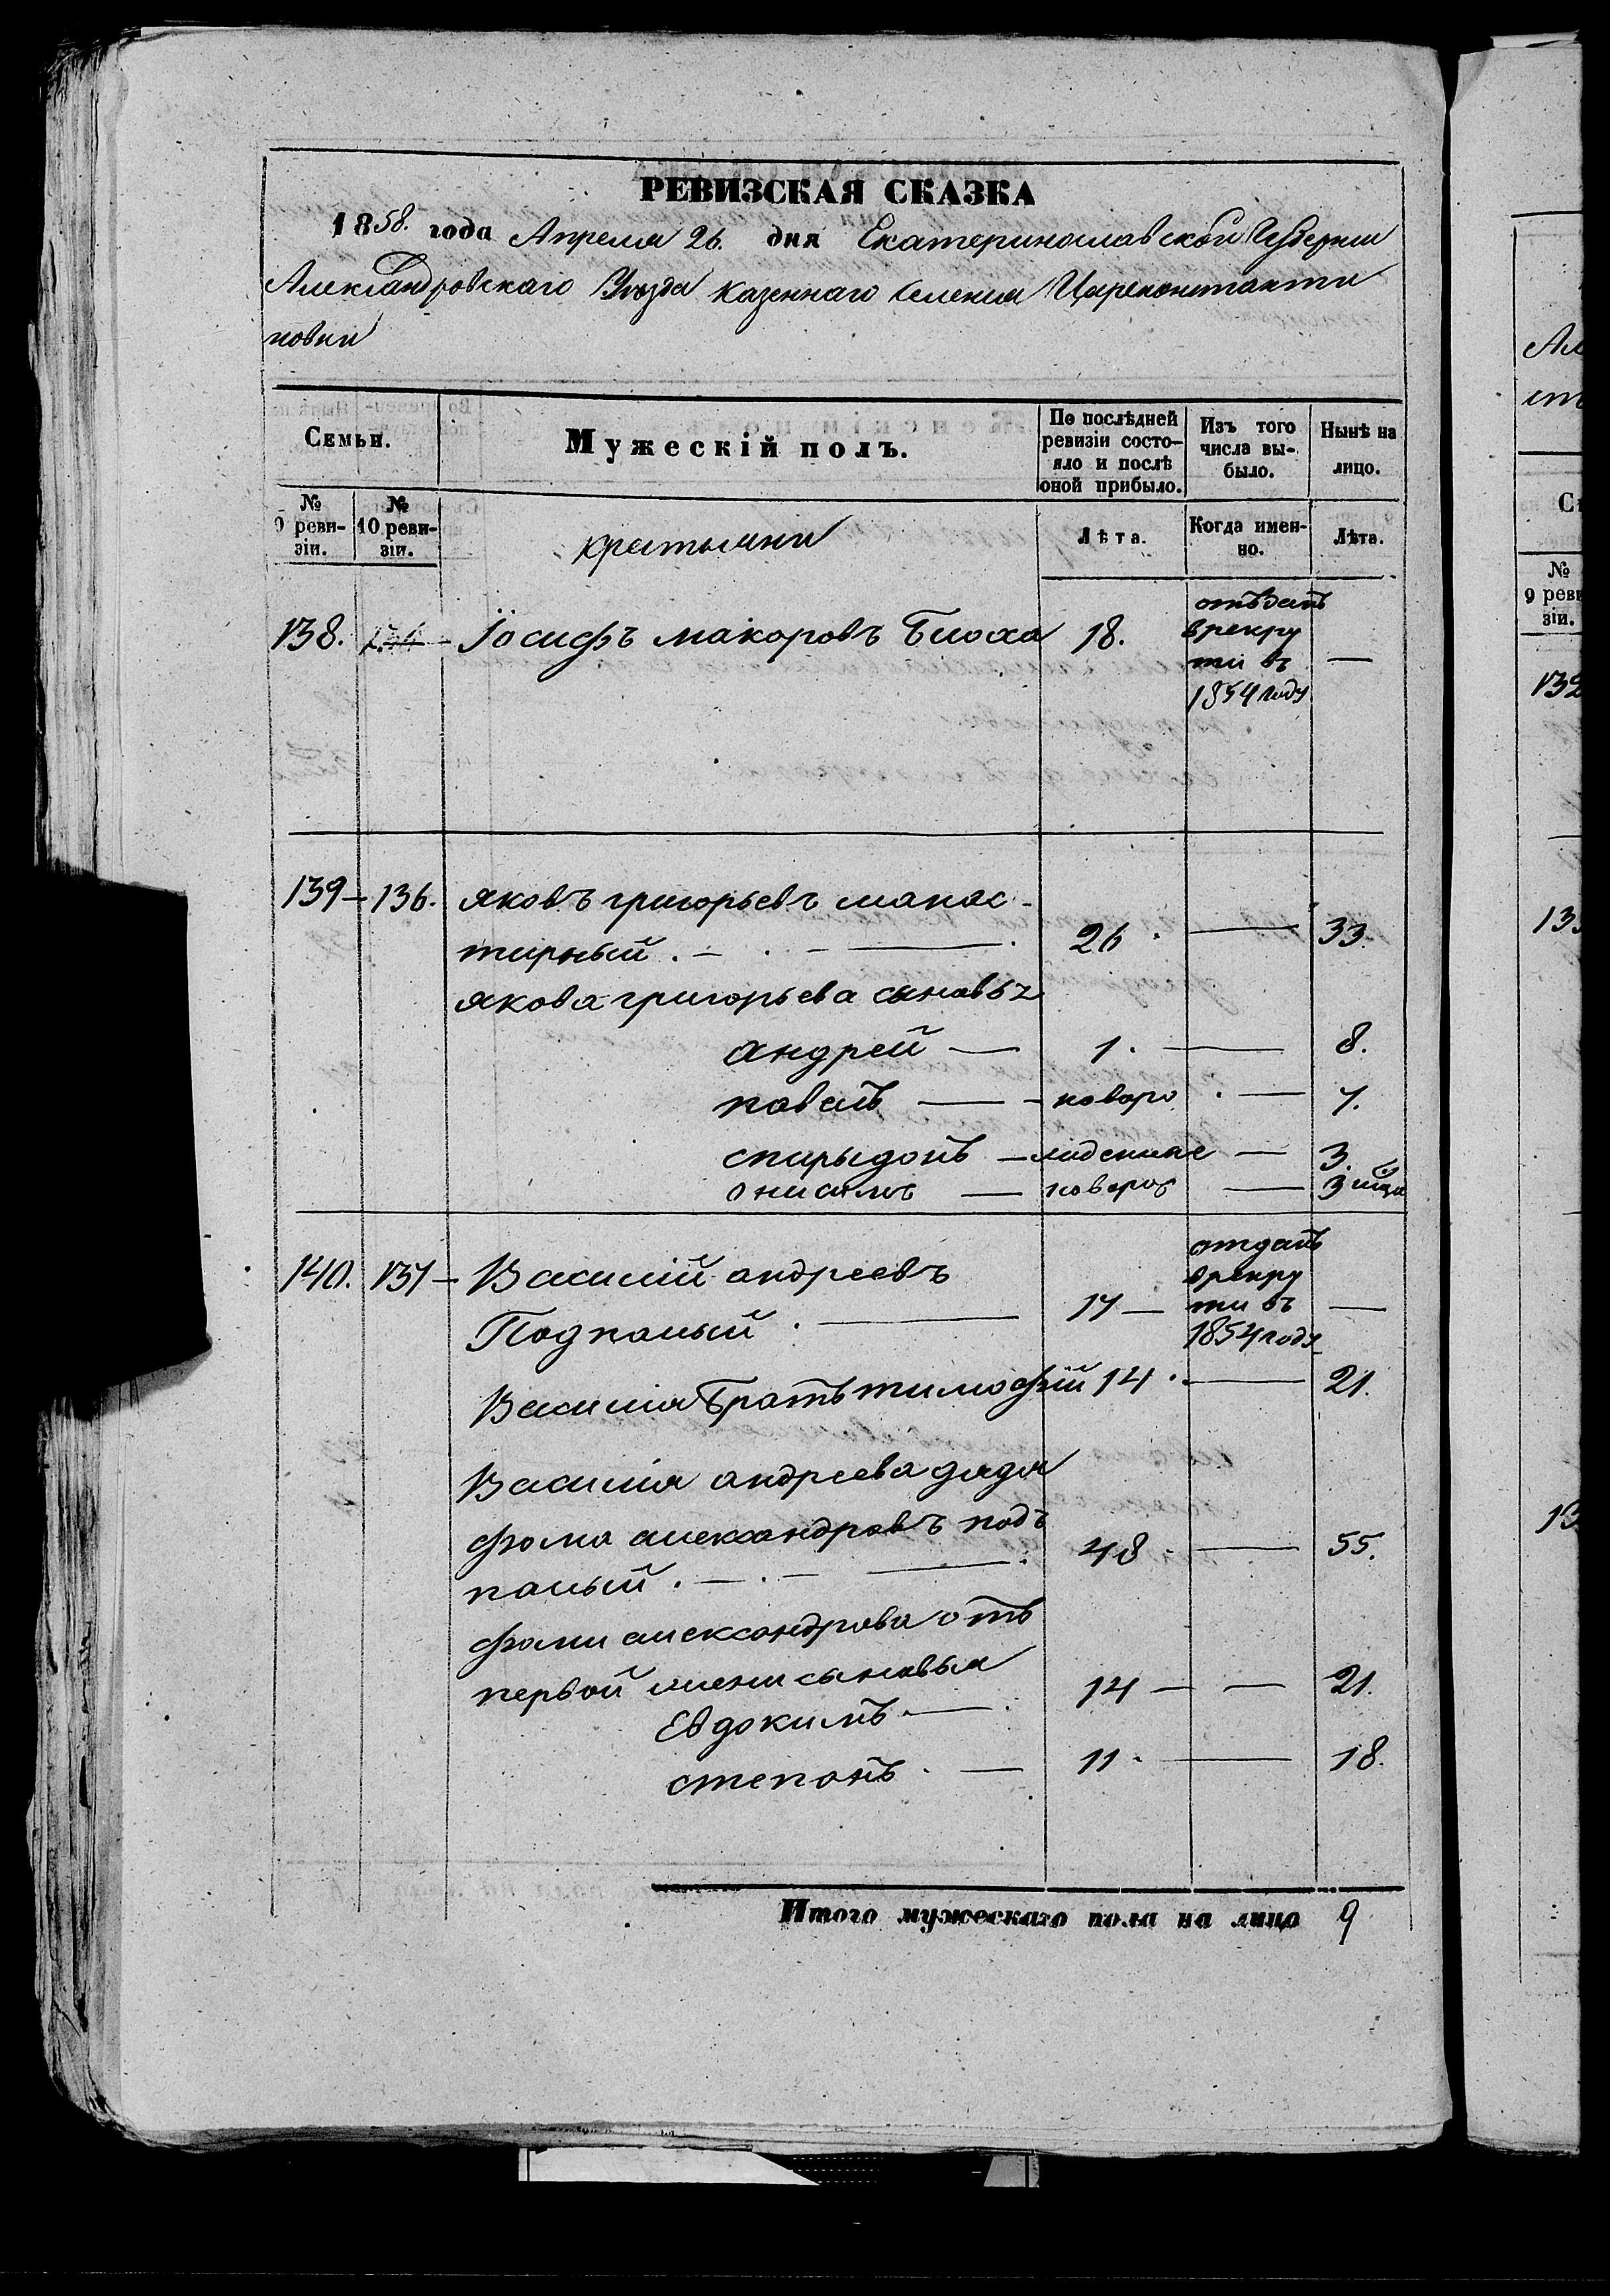 РЕВИЗСКАЯ СКАЗКА
1858. года Апреля 26. дня Екатеринославской Губернии
Александровскаго Уезда казеннаго селения Цареконстанти
новки
Семьи.
Мужескій полъ.
По послѣдней ревизіи состо-яло и послѣ оной прибыло.
Изъ того числа вы-было.
Нынѣ на лицо.
№ 9 реви-зіи.
№ 10 реви-зіи.
крестьяни
Лѣта.
Когда имен-но.
Лѣта.
138. Іосифъ макоровъ Блоха 18. отъдатъ врекру ти въ 1854 году —
139 — 136. яковъ григорьевъ манас-
тирный . — 26 — 33
якова григорьева сыновья
андрей — 1. — 8.
павелъ — новоро — 7.
спирыдонъ — — 3.
онисимъ — новорож — 3 мца
140. 137 — Василий андреевъ
Подпалый . — 17 — отданъ врекру ти въ 1854 году —
Василия Братъ тимофий 14 . — 21.
Василия андреева дядя
фома александровъ подъ
палый . — 48 — 55.
фоми александрова отъ
первой жени сыновья
Евдокимъ — 14 — 21.
степанъ . — 11. — 18.
Итого мужескаго пола на лицо 9
Ал
ст
№
9 реви
зіи.